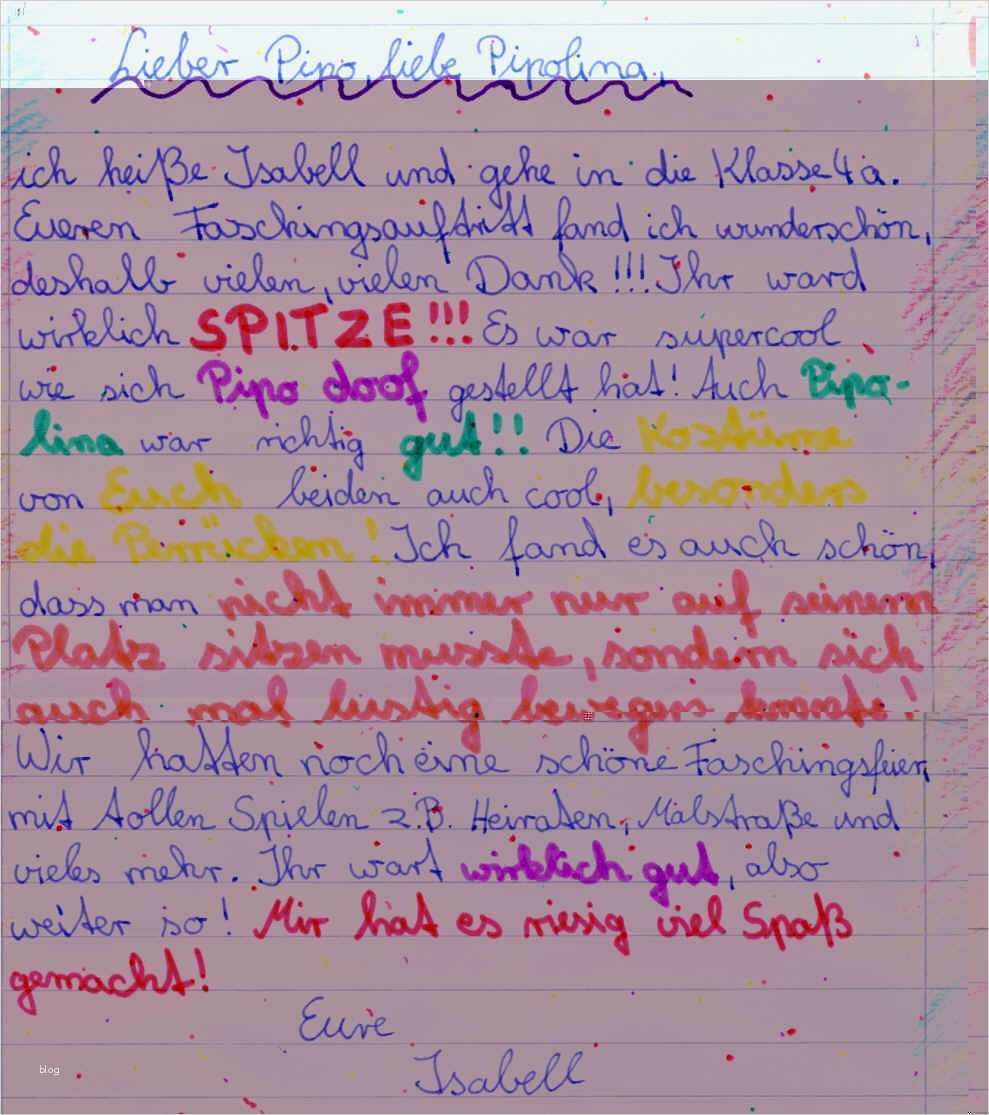 Lieber Pipo, liebe Pipolina,
ich heiße Isabell und gehe in die Klasse 4a.
Eueren Faschingsauftritt fand ich wunderschön,
deshalb vielen, vielen Dank!!! Ihr ward
wirklich SPITZE!!! Es war supercool
wie sich Pipo doof gestellt hat! Auch Pipo-
lina war richtig gut!! Die Kostüme
von Euch beiden auch cool, besonders
die Perrücken! Ich fand es auch schön,
dass man nicht immer nur auf seinem
Platz sitzen musste, sondern sich
auch mal lustig bewegen konnte!
Wir hatten noch eine schöne Faschingsfeier
mit tollen Spielen z.B. Heiraten, Malstraße und
vieles mehr. Ihr wart wirklich gut, also
weiter so! Mir hat es riesig viel Spaß
gemacht!
Eure
Isabell
blog